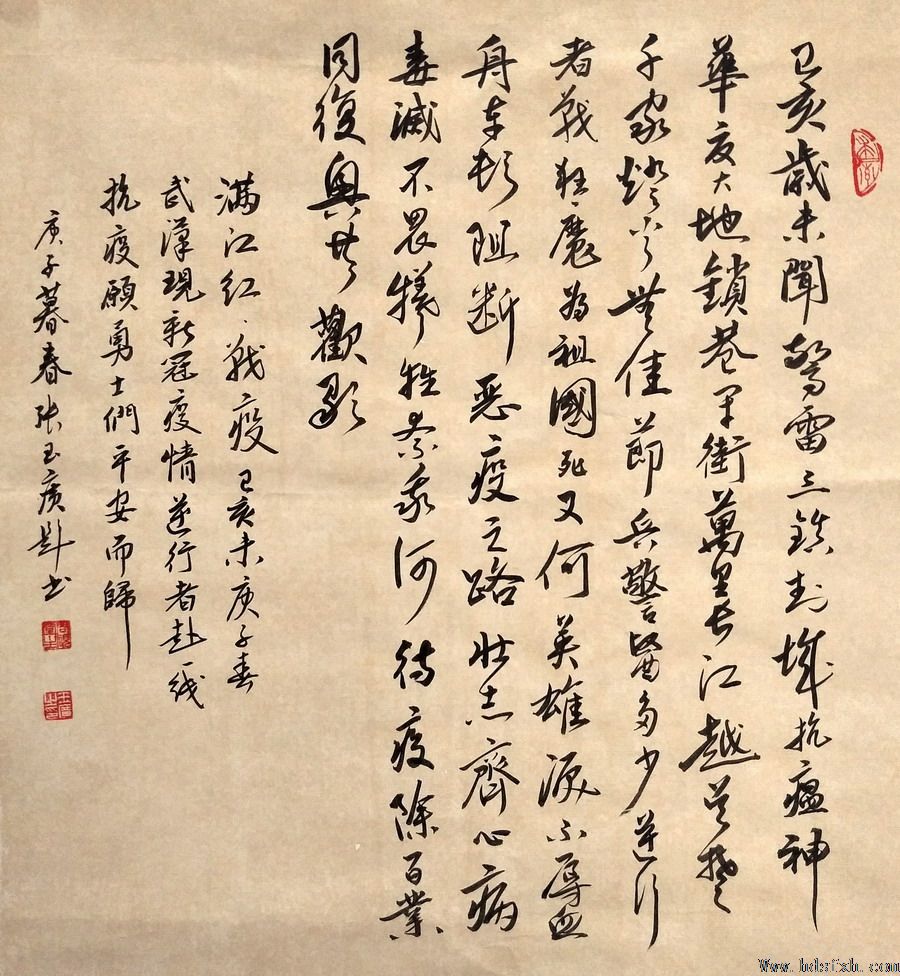 己亥歲末聞驚雷三鎮封城抗瘟神
華夏大地鎖巷街萬里長江越吴楚
千家燈火無佳節兵警醫多少逆行
者戰狂魔為祖國死又何英雄淚不辱血
舟车阻断惡疫之路壯志齊心病
毒滅不畏犧牲奈我何待疫除百業
同復興共歡歌
滿江红·戰疫己亥末庚子春
武漢現新冠疫情逆行者赴一线
抗疫願勇士們平安而歸
庚子暮春张玉廣书